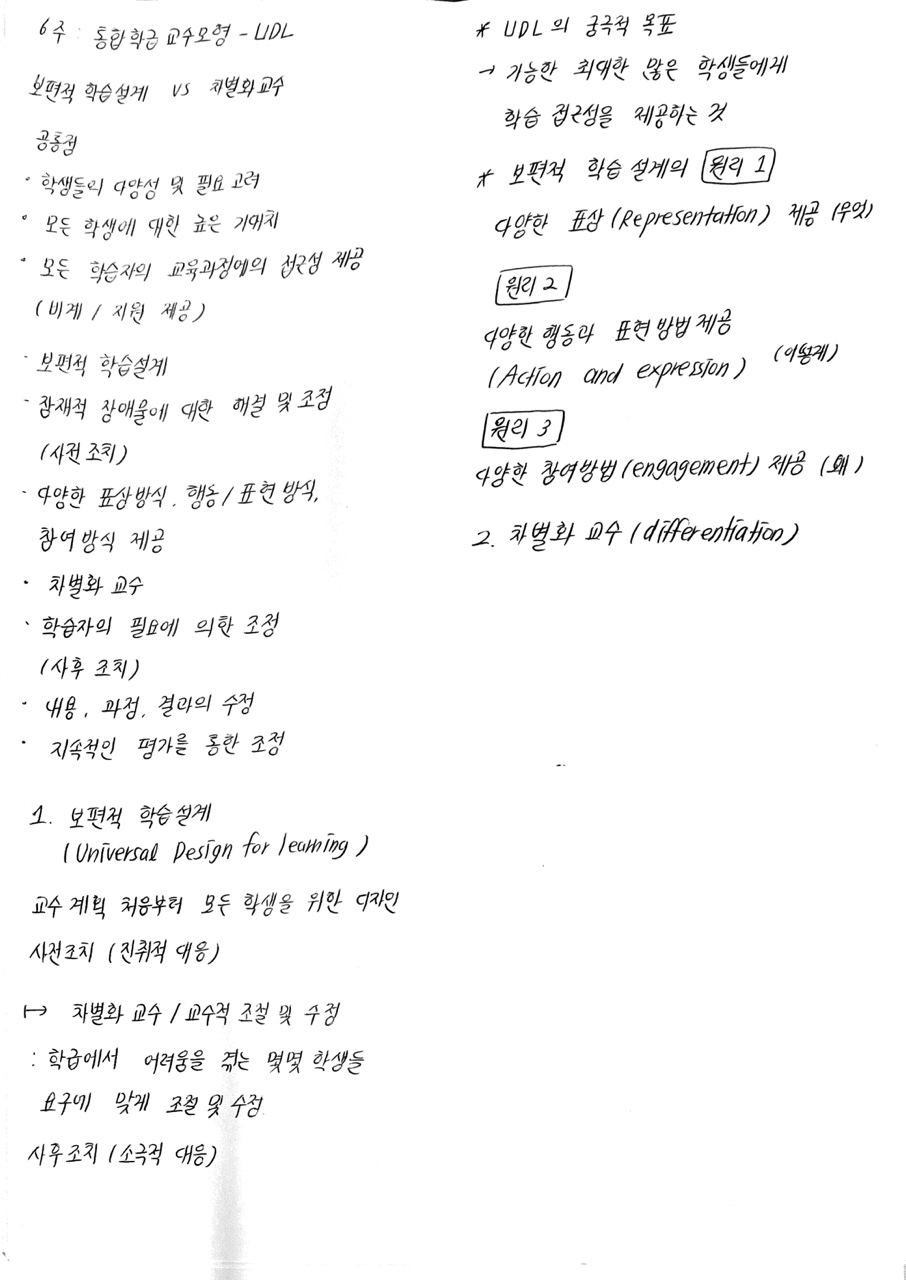 6주 : 통합학급 교수모형 - UDL
보편적 학습설계 VS 차별화교수
공통점
· 학생들의 다양성 및 필요 고려
· 모든 학생에 대한 높은 기대치
· 모든 학습자의 교육과정에의 접근성 제공
(비계 / 지원 제공)
· 보편적 학습설계
- 잠재적 장애물에 대한 해결 및 조정
(사전 조치)
· 다양한 표상방식, 행동/표현 방식,
참여 방식 제공
· 차별화 교수
· 학습자의 필요에 의한 조정
(사후 조치)
· 내용, 과정, 결과의 수정
· 지속적인 평가를 통한 조정
1. 보편적 학습설계
(Universal Design for learning)
교수 계획 처음부터 모든 학생을 위한 디자인
사전조치 (진취적 대응)
↦ 차별화 교수 / 교수적 조절 및 수정
: 학급에서 어려움을 겪는 몇몇 학생들
요구에 맞게 조절 및 수정
사후조치 (소극적 대응)
* UDL의 궁극적 목표
→ 가능한 최대한 많은 학생들에게
학습 접근성을 제공하는 것
* 보편적 학습 설계의 원리 1
다양한 표상 (Representation) 제공 (무엇)
원리 2
다양한 행동과 표현 방법 제공
(Action and expression) (어떻게)
원리 3
다양한 참여방법 (engagement) 제공 (왜)
2. 차별화 교수 (differentiation)